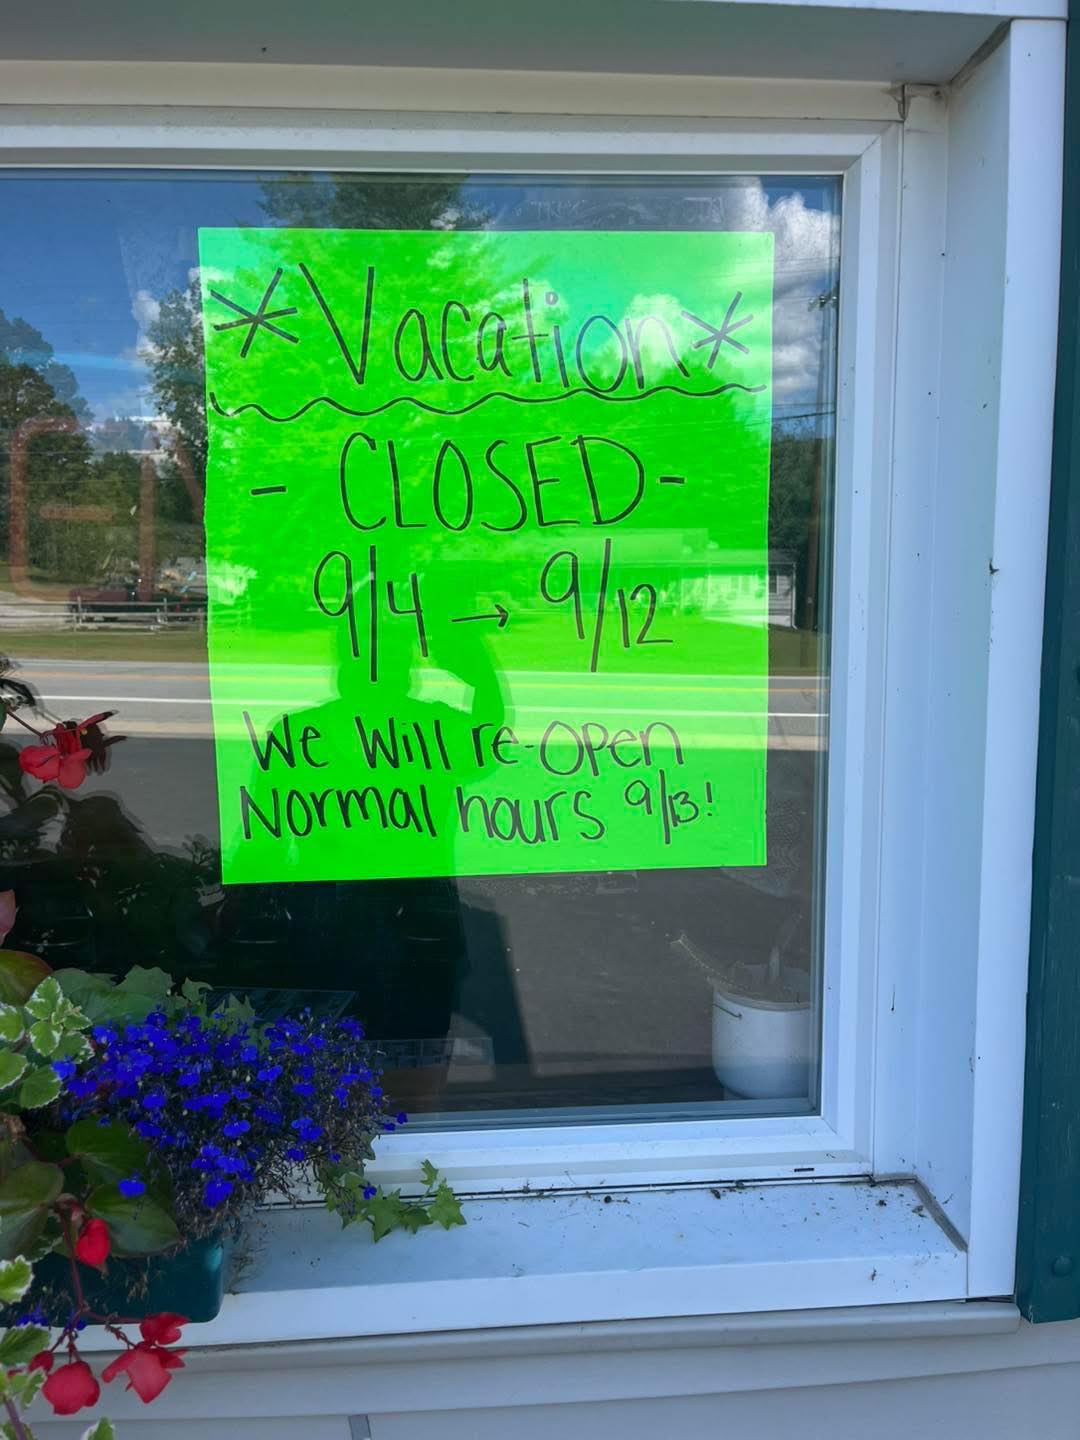 *Vacation*
- CLOSED -
9/4 → 9/12
We Will re-open
Normal hours 9/13!